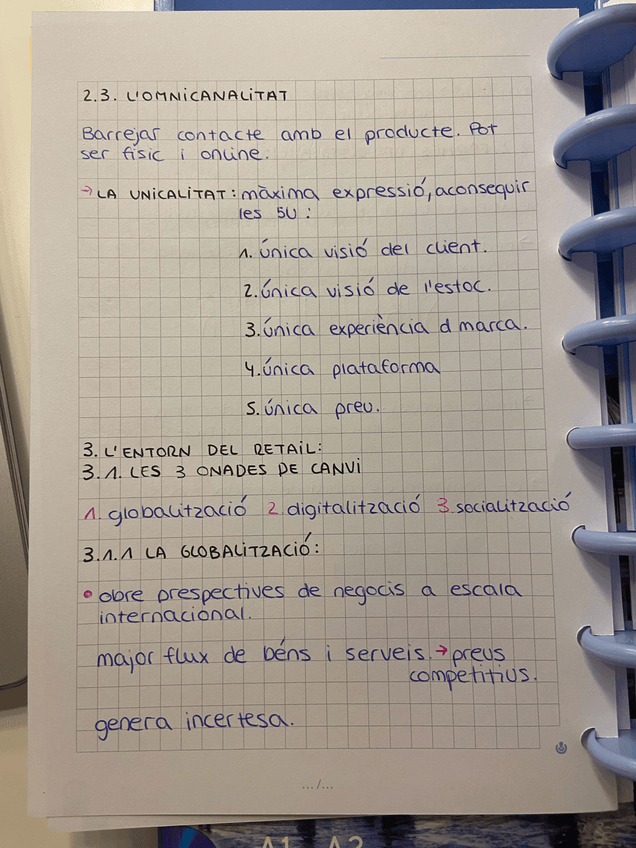 2.3. L'OMNICANALITAT
Barrejar contacte amb el producte. Pot
ser físic i online.
→ LA UNICALITAT: màxima expressió, aconseguir
les 5U:
1. única visió del client.
2. única visió de l'estoc.
3. única experiència d marca.
4. única plataforma
5. únic preu.
3. L'ENTORN DEL RETAIL:
3.1. LES 3 ONADES DE CANVI
1. globalització 2. digitalització 3. socialització
3.1.1 LA GLOBALITZACIÓ:
• obre prespectives de negocis a escala
internacional.
major flux de béns i serveis. → preus
competitius.
genera incertesa.
.../...
A1 A2